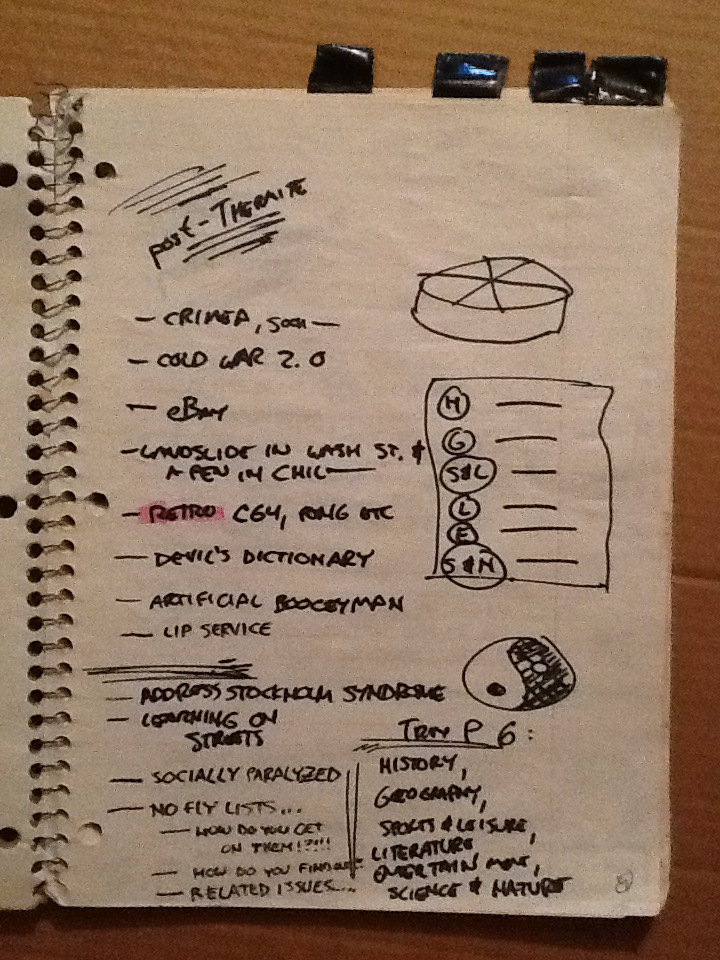 post-THERMITE
— CRIMEA, SOCHI —
— COLD WAR 2.0
— eBAY
— LANDSLIDE IN WASH ST. &
A PEN IN CHIL—
— RETRO C64, PONG ETC
— DEVIL'S DICTIONARY
— ARTIFICIAL BOOGEYMAN
— LIP SERVICE
— ADDRESS STOCKHOLM SYNDROME
— LEARNING ON
STREETS
— SOCIALLY PARALYZED
— NO FLY LISTS...
— HOW DO YOU GET
ON THEM!?!!!
— HOW DO YOU FIND OUT
— RELATED ISSUES...
H —
G —
S&L —
L —
E —
S&N —
TRIV P 6:
HISTORY,
GEOGRAPHY,
SPORTS & LEISURE,
LITERATURE
ENTERTAINMENT,
SCIENCE & NATURE